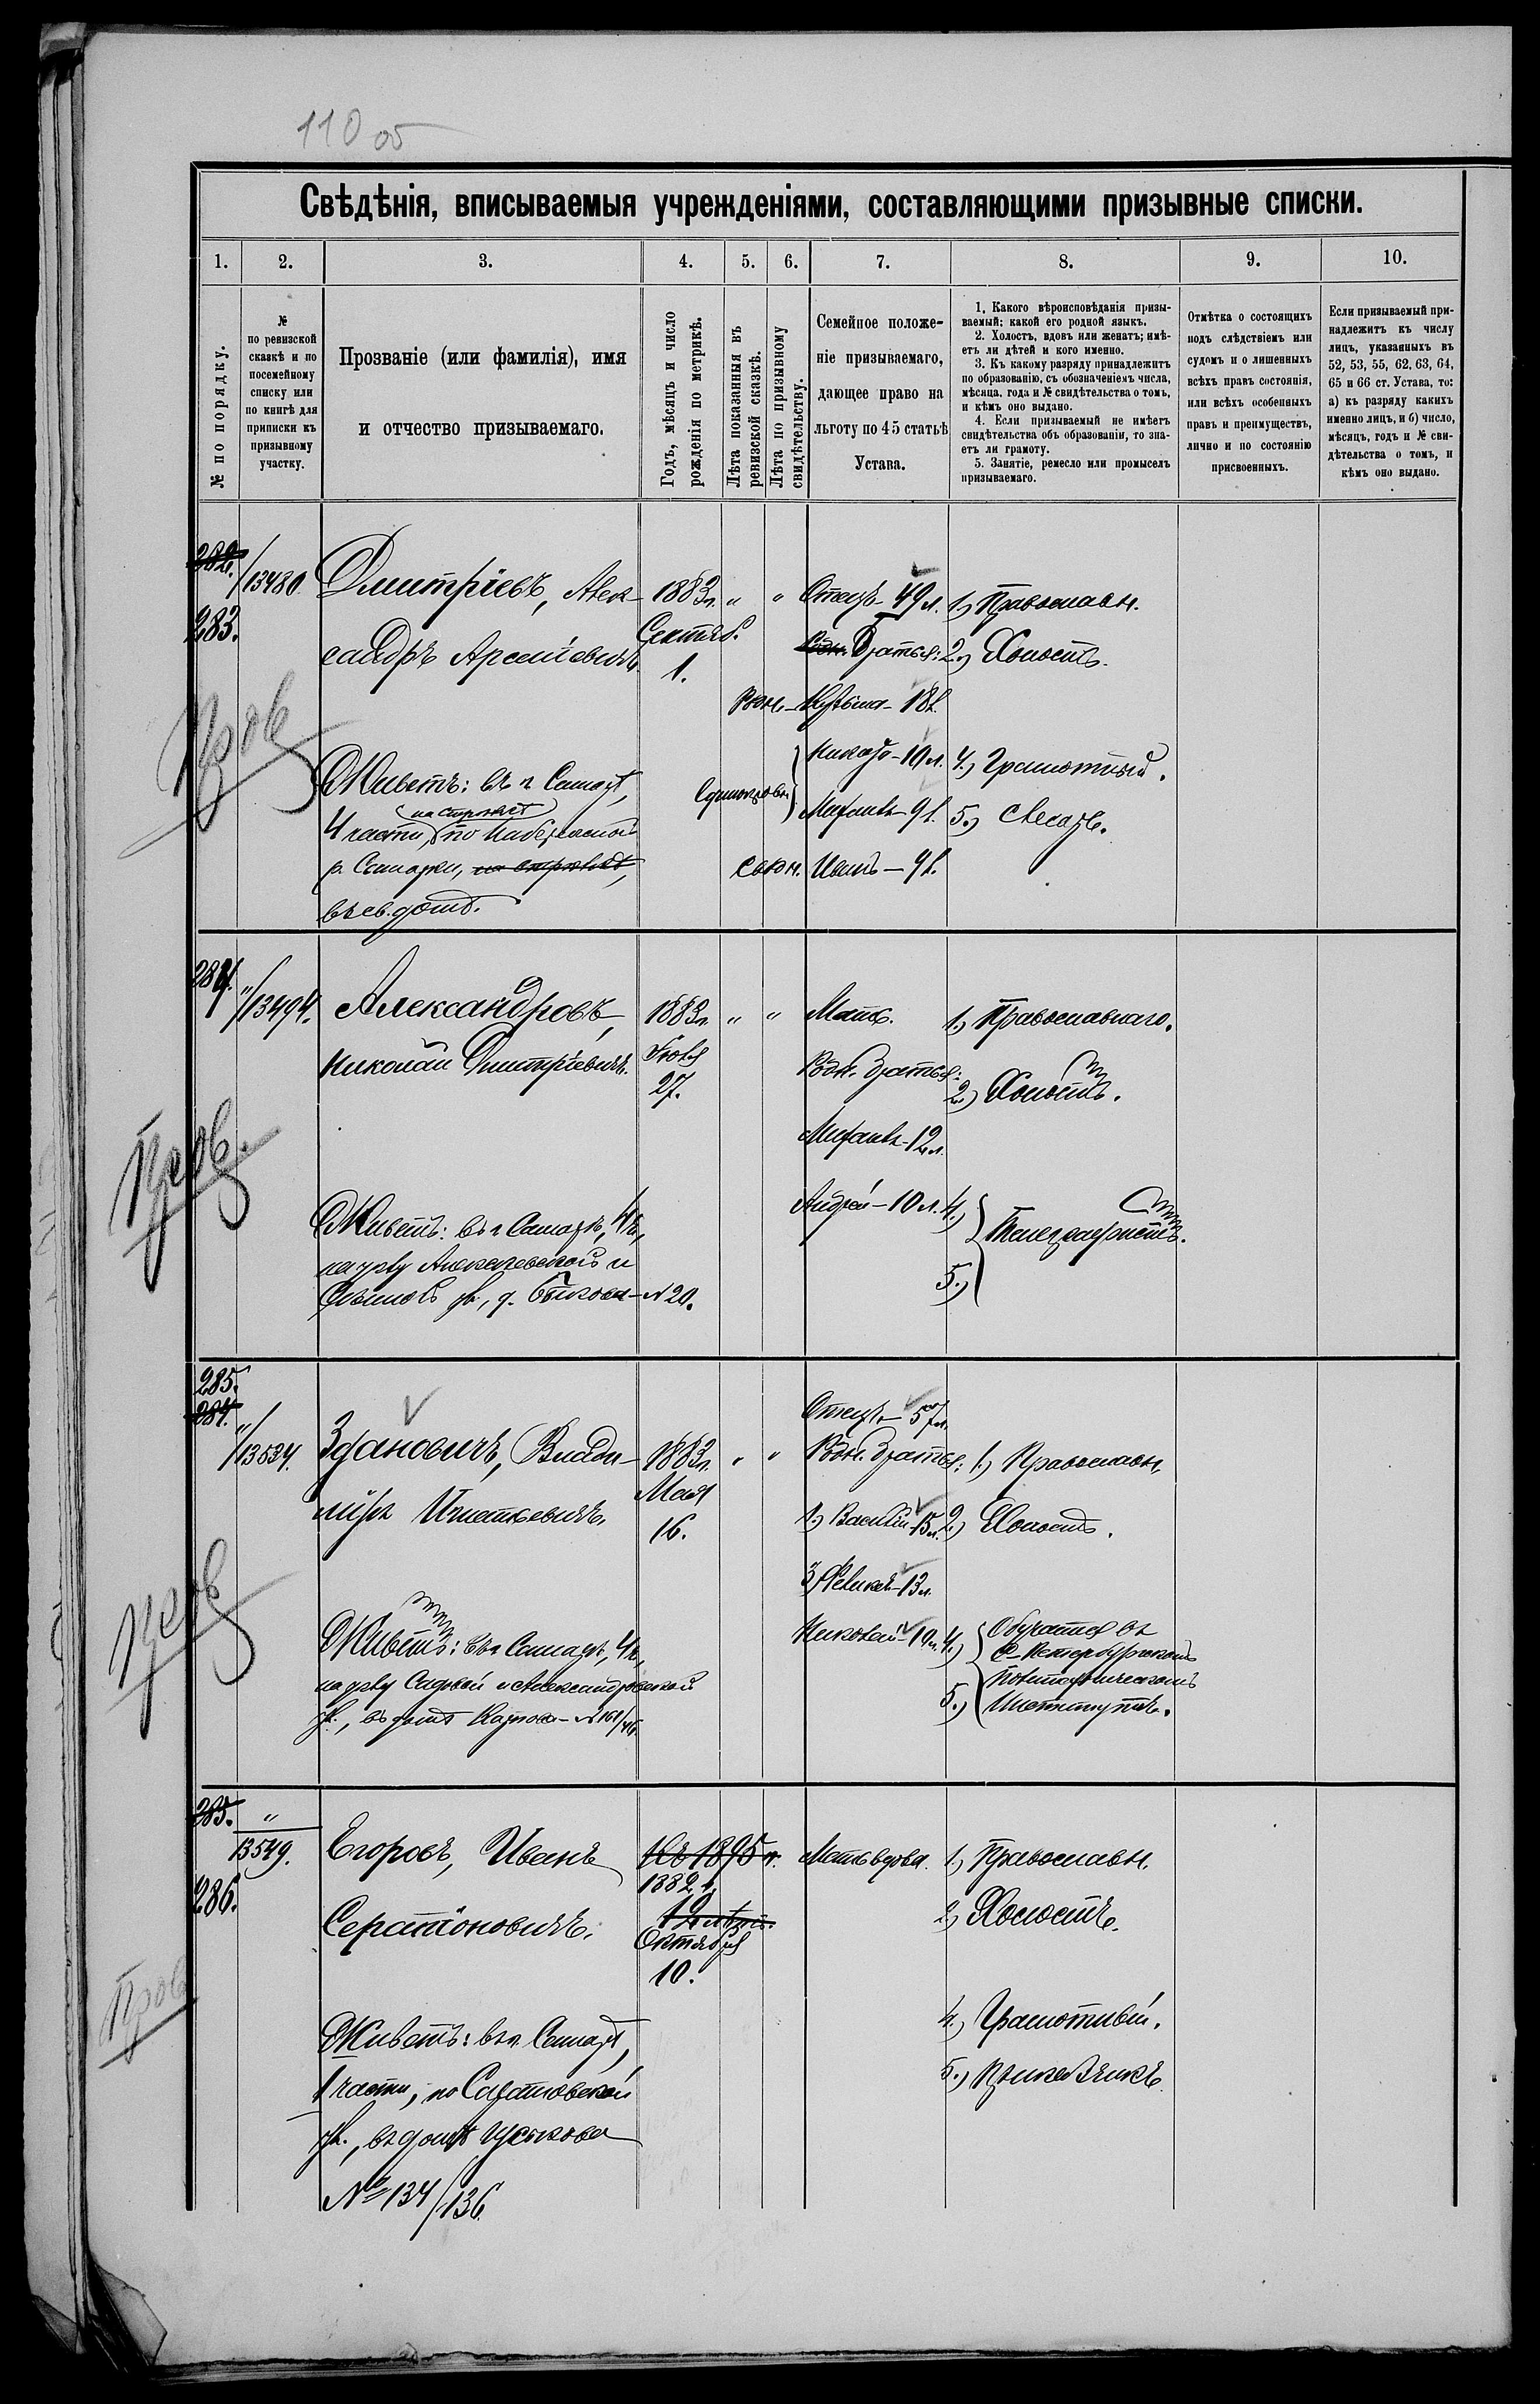 110 об
Свѣдѣнія, вписываемыя учрежденіями, составляющими призывные списки.
1. 2. 3. 4. 5. 6. 7. 8. 9. 10.
№ по порядку.
№
по ревизской
сказкѣ и по
посемейному
списку или
по книгѣ для
приписки къ
призывному
участку.
Прозваніе (или фамилія), имя
и отчество призываемаго.
Годъ, мѣсяцъ и число
рожденія по метрикѣ.
Лѣта показанныя въ
ревизской сказкѣ.
Лѣта по призывному
свидѣтельству.
Семейное положе-
ніе призываемаго,
дающее право на
льготу по 45 статьѣ
Устава.
1. Какого вѣроисповѣданія призы-
ваемый; какой его родной языкъ.
2. Холостъ, вдовъ или женатъ; имѣ-
етъ ли дѣтей и кого именно.
3. Къ какому разряду принадлежитъ
по образованію, съ обозначеніемъ числа,
мѣсяца, года и № свидѣтельства о томъ,
и кѣмъ оно выдано.
4. Если призываемый не имѣетъ
свидѣтельства объ образованіи, то зна-
етъ ли грамоту.
5. Занятіе, ремесло или промыселъ
призываемаго.
Отмѣтка о состоящихъ
подъ слѣдствіемъ или
судомъ и о лишенныхъ
всѣхъ правъ состоянія,
или всѣхъ особенныхъ
правъ и преимуществъ,
лично и по состоянію
присвоенныхъ.
Если призываемый при-
надлежитъ къ числу
лицъ, указанныхъ въ
52, 53, 55, 62, 63, 64,
65 и 66 ст. Устава, то:
а) къ разряду какихъ
именно лицъ, и б) число,
мѣсяцъ, годъ и № сви-
дѣтельства о томъ, и
кѣмъ оно выдано.
282.
283.
/13480
Дмитріевъ, Алек-
сандръ Арсеніевичъ.
1883 г.
Сентяб.
1.
" "
Отецъ - 49 л.
Родн. Братья:
родн. - Кузьма - 18 л.
- 10 л.
единокровн. Михаилъ - 9 л.
сводн. Иванъ - 9 л.
1.) Православн.
2.) Холостъ.
4.) Грамотный.
5.) Слесарь.
Пров
Живетъ: въ г. Самарѣ,
4 части, по Набережной
р. Самарки,
въ св. домѣ.
284.
"/13494.
Александровъ,
Николай Дмитріевичъ.
1883 г.
Іюля
27.
" "
Мать.
Родн. братья:
Михаилъ - 12 л.
Андрей - 10 л.
1.) Православнаго.
2.) Холостъ.
4.)
5.)
Телеграфистъ.
Пров.
Живетъ: въ г. Самарѣ, 4 ч.,
на углу Алексѣевской и
ул., д. Быкова - № 20.
285.
284.
"/13534.
Здановичъ, Влади-
міръ Игнатьевичъ.
1883 г.
Мая
16.
" "
Отецъ - 57 л.
Родн. братья:
1.) Василій - 15 л.
13 л.
Николай - 10 л.
1.) Православн.
2.) Холостъ.
4.)
5.)
Обучается въ
С-Петербургскомъ
Политехническомъ
Институтѣ.
Пров
Живетъ: въ г. Самарѣ, 4 ч.,
на углу Садовой и Александровской
ул., въ домѣ - № 161/46
285.
286.
"
13549.
Егоровъ, Иванъ
Серапіоновичъ.
Къ 1895 г.
1882 г.
12 лѣтъ.
Октября
10.
Мать вдова.
1.) Православн.
2.) Холостъ.
4.) Грамотный.
5.)
Пров
Живетъ: въ г. Самарѣ,
1 части, по Саратовской
ул., въ домѣ
№ 134/136.